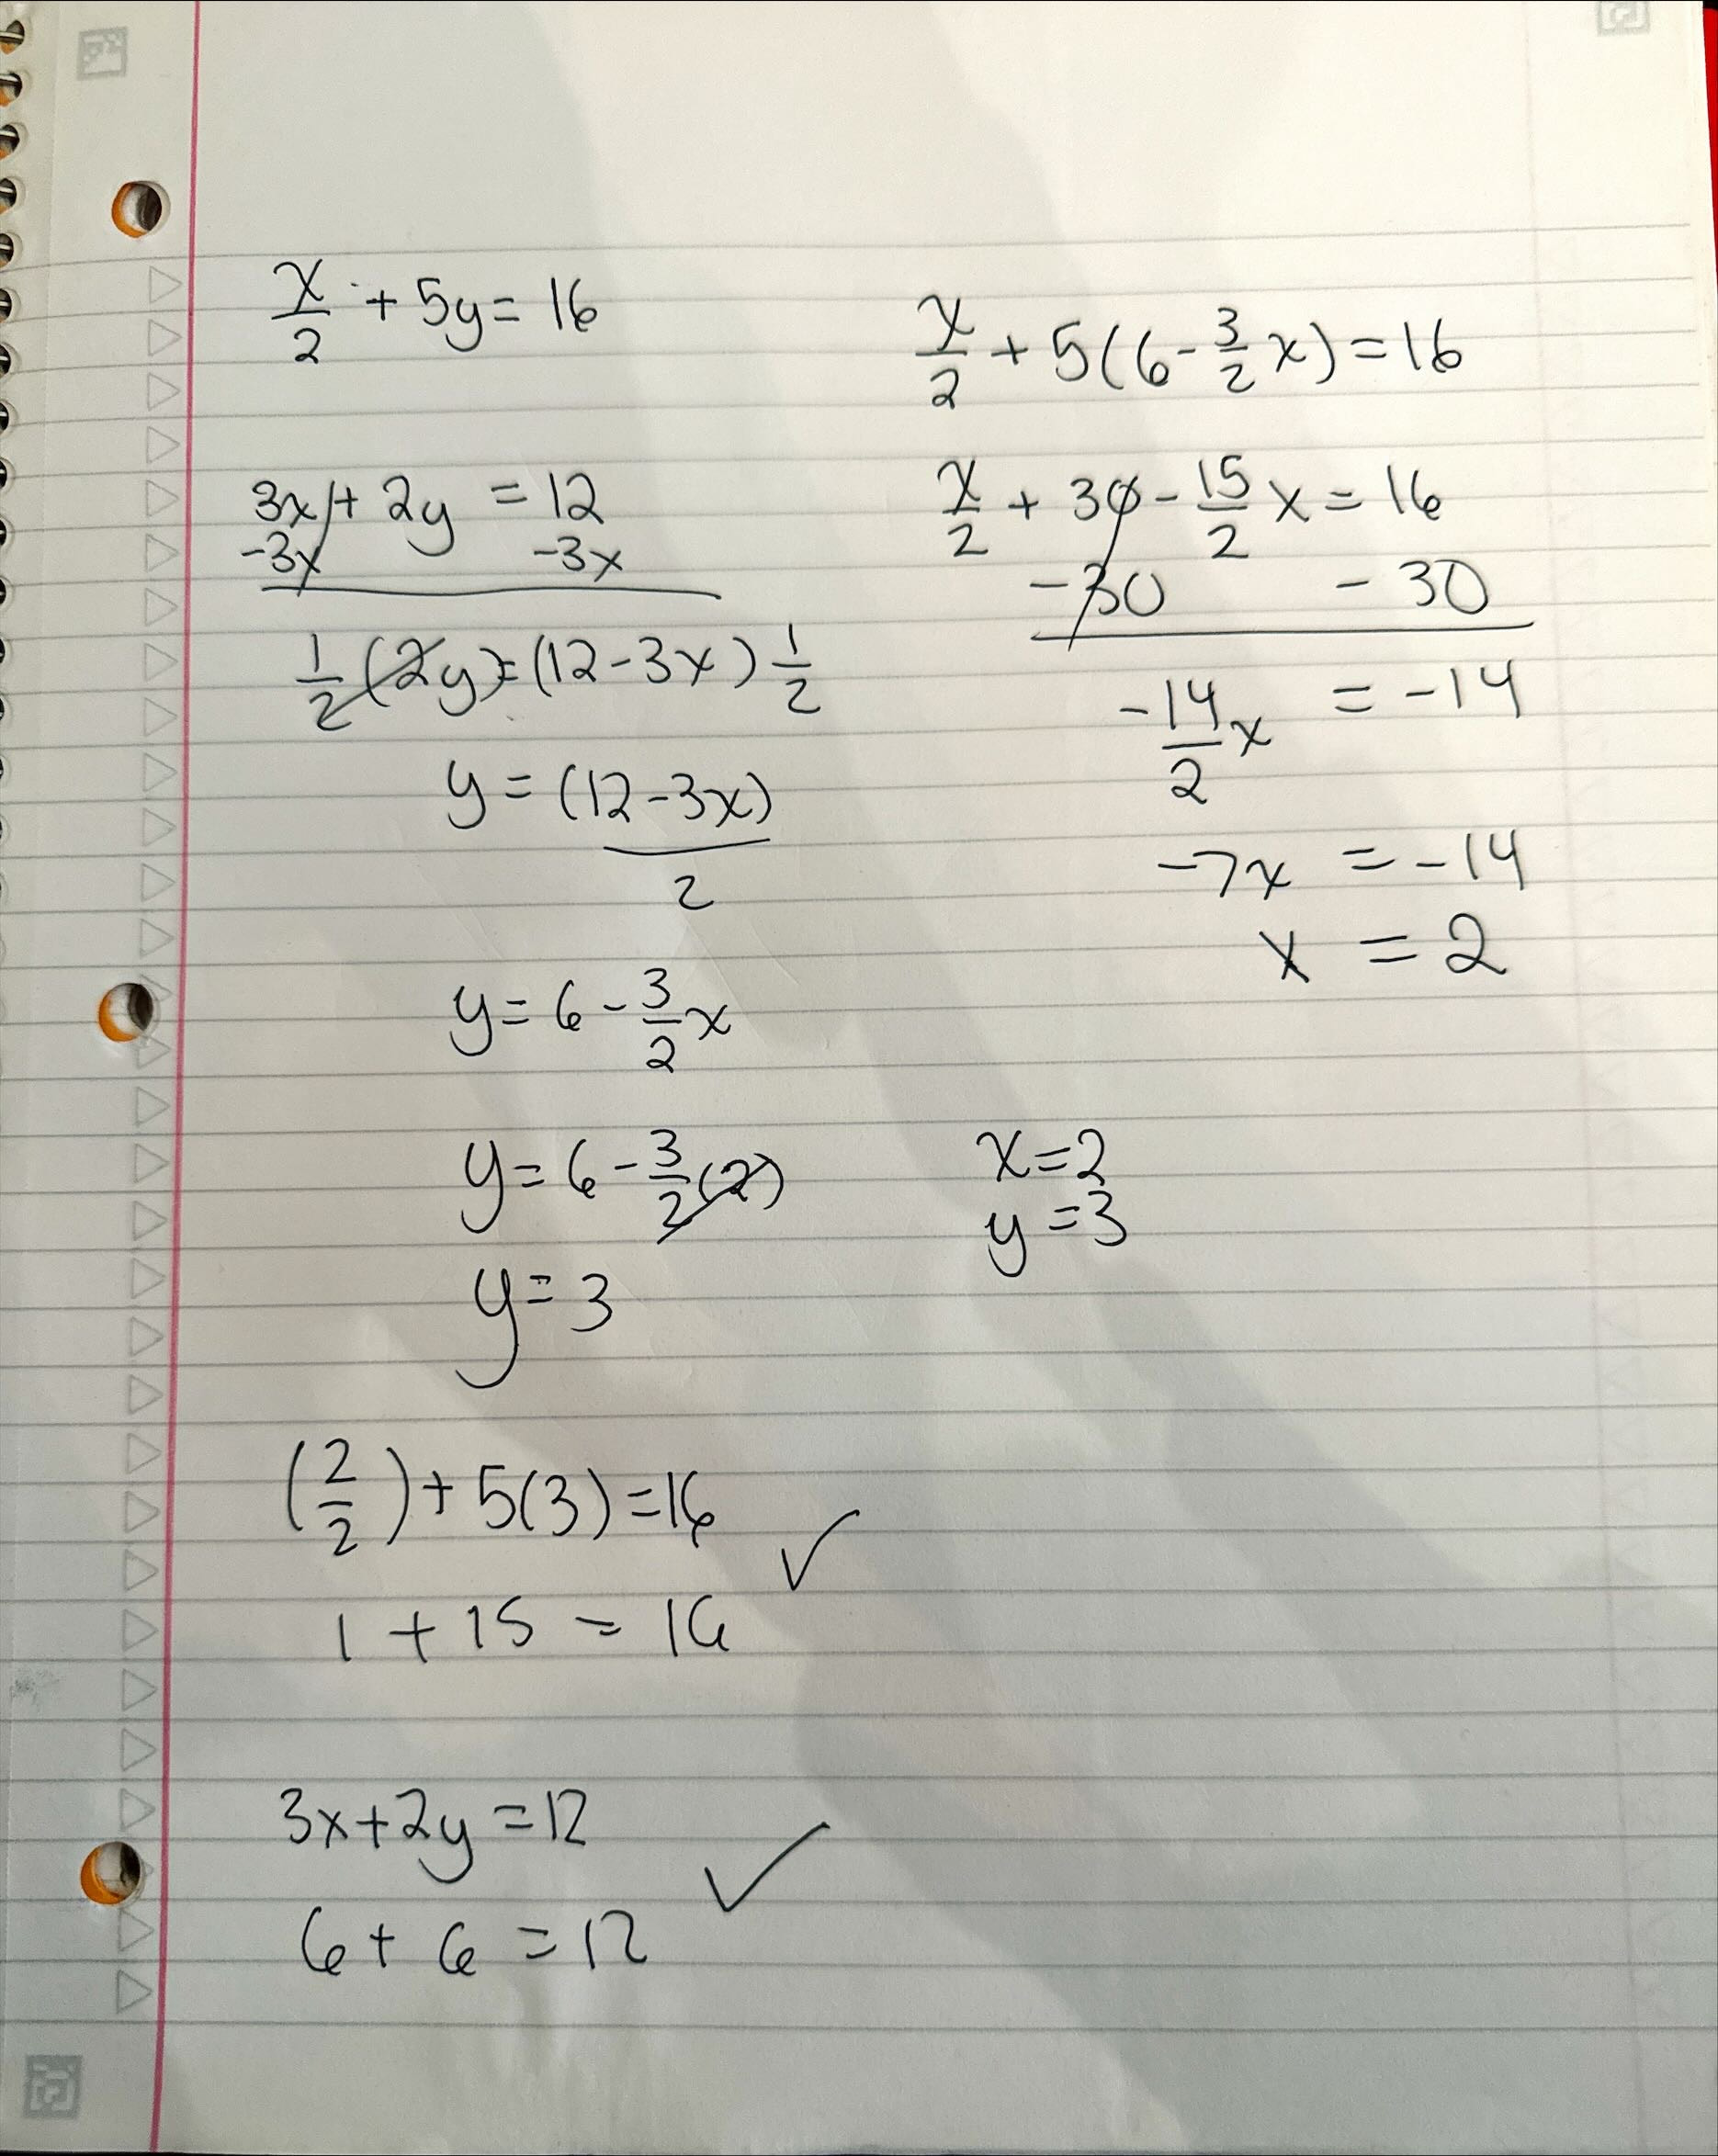 x/2 + 5y = 16
3x + 2y = 12
-3x -3x
1/2 (2y) = (12 - 3x) 1/2
y = (12 - 3x)
2
y = 6 - 3/2 x
y = 6 - 3/2 (2)
y = 3
x/2 + 5(6 - 3/2 x) = 16
x/2 + 30 - 15/2 x = 16
-30 - 30
-14/2 x = -14
-7x = -14
x = 2
x = 2
y = 3
(2/2) + 5(3) = 16 ✓
1 + 15 = 16
3x + 2y = 12 ✓
6 + 6 = 12